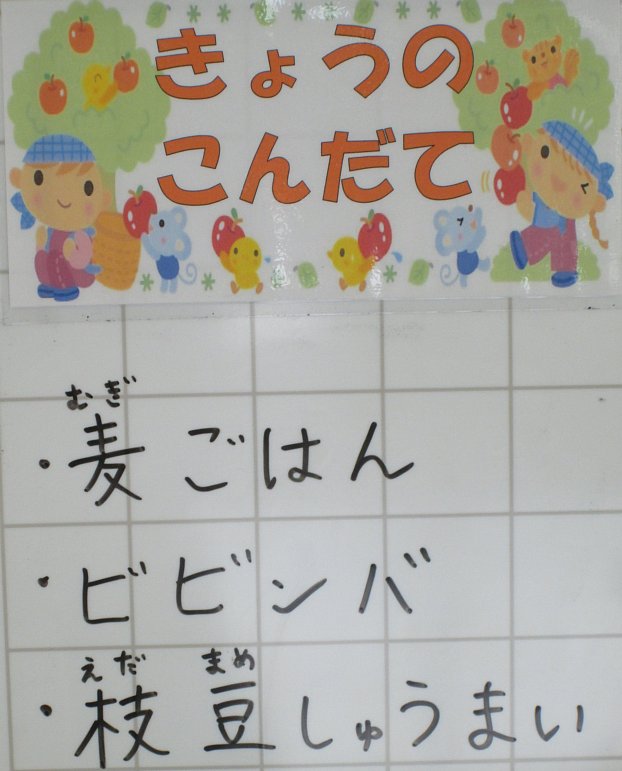 きょうの
こんだて
むぎ
・麦ごはん
・ビビンバ
えだ まめ
・枝豆しゅうまい